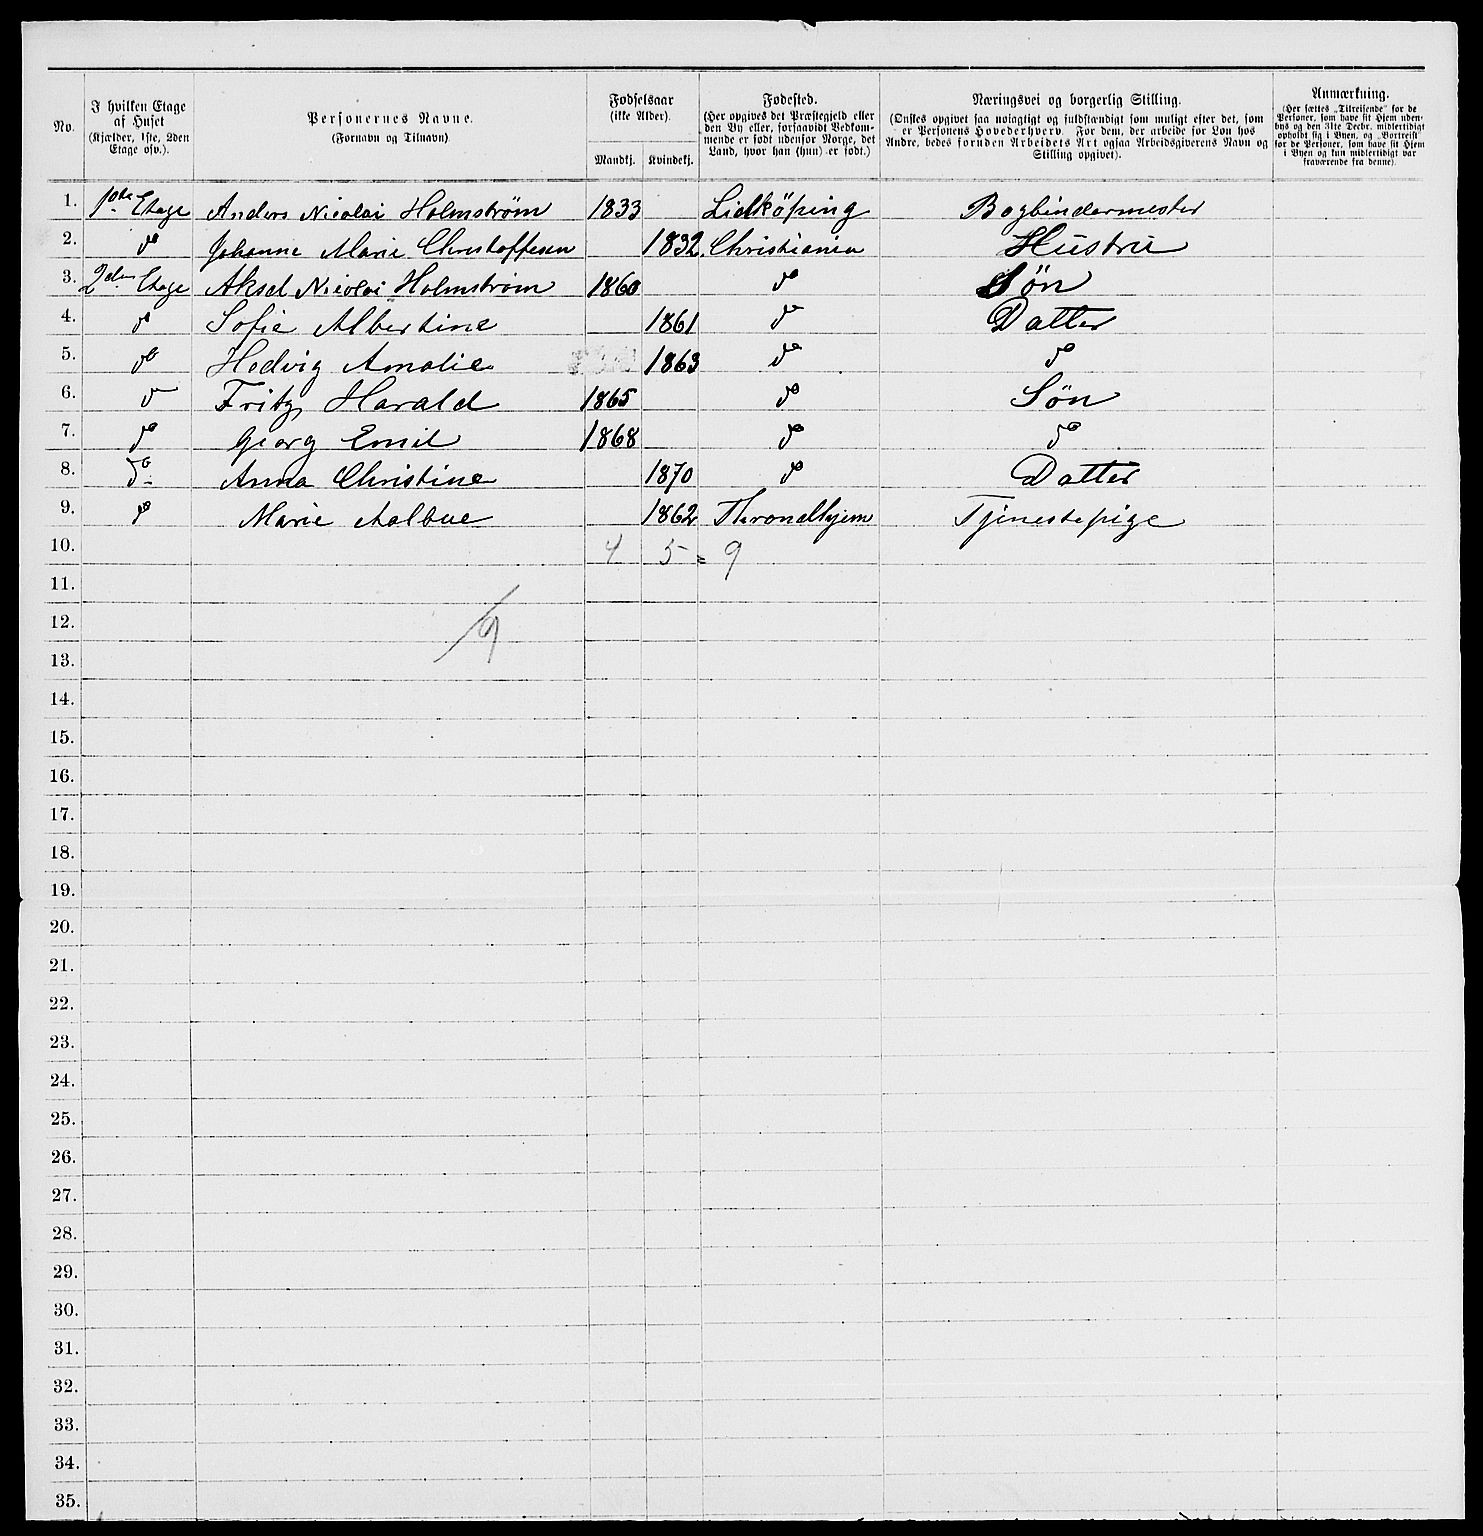 No. | I hvilken Etage af Huset (Kjælder, 1ste, 2den Etage osv.). | Personernes Navne. (Fornavn og Tilnavn). | Fødselsaar (ikke Alder). Mandkj. | Kvindekj. | Fødested. (Her opgives det Præstegjeld eller den By eller, forsaavidt Vedkommende er født udenfor Norge, det Land, hvor han (hun) er født.) | Næringsvei og borgerlig Stilling. (Ønskes opgivet saa nøiagtigt og fuldstændigt som muligt efter det, som er Personens Hovederhverv. For dem, der arbeide for Løn hos Andre, bedes foruden Arbeidets Art ogsaa Arbeidsgiverens Navn og Stilling opgivet). | Anmærkning. (Her sættes „Tilreisende“ for de Personer, som have sit Hjem udenbys og den 31te Decbr. midlertidigt opholdt sig i Byen, og „Bortreist“ for de Personer, som have sit Hjem i Byen og kun midlertidigt var fraværende fra denne).
1. 1ste Etage Anders Nicolai Holmstrøm 1833 Lidköping Bogbindermester
2. do Johanne Marie Christoffesen 1832 Christiania Hustru
3. 2den Etage Aksel Nicolai Holmstrøm 1860 do Søn
4. do Sofie Albertine 1861 do Datter
5. do Hedvig Amalie 1863 do do
6. do Fritz Harald 1865 do Søn
7. do Georg Emil 1868 do do
8. do Anna Christine 1870 do Datter
9. do Marie Aalbue 1862 Throndhjem Tjenestepige
10. 4 5 = 9
11.
12. 9
13.
14.
15.
16.
17.
18.
19.
20.
21.
22.
23.
24.
25.
26.
27.
28.
29.
30.
31.
32.
33.
34.
35.